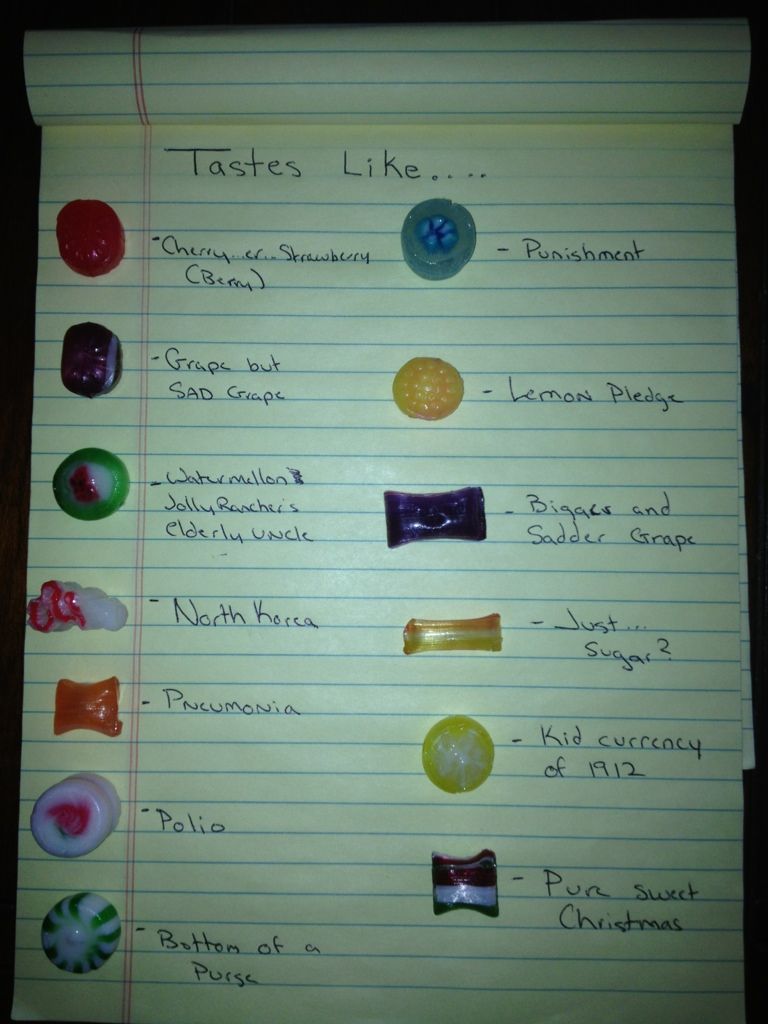 Tastes Like....
- Cherry...er...Strawberry
(Berry)
- Grape but
SAD Grape
- Watermellon
Jolly Rancher's
elderly uncle
- North Korea
- Pneumonia
- Polio
- Bottom of a
Purse
- Punishment
- Lemon Pledge
- Bigger and
Sadder Grape
- Just...
Sugar?
- Kid currency
of 1912
- Pure sweet
Christmas